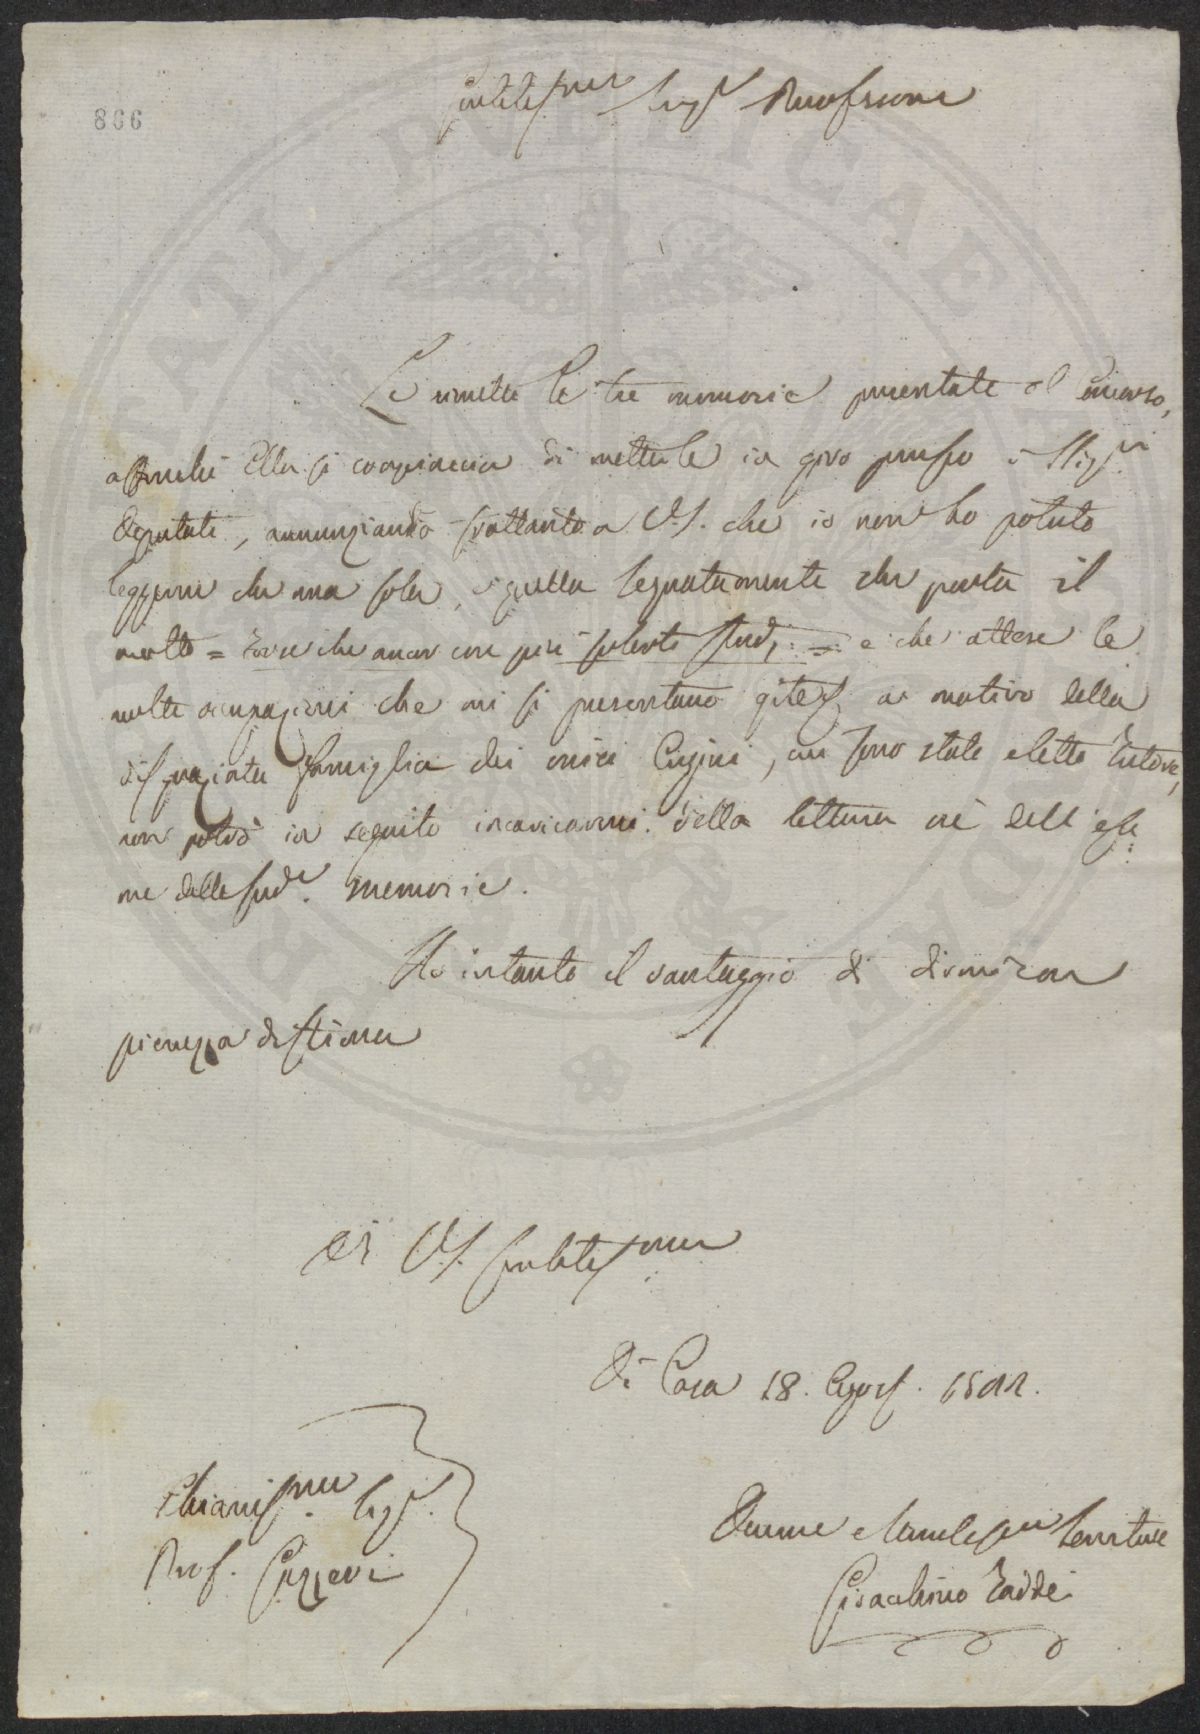 866
Eccellmo Sigr Professore
Le rimetto le tre memorie presentate al concorso,
affinchè Ella si compiaccia di metterle in giro presso i Sigri
Deputati, annunziando frattanto a V.S. che io non ho potuto
leggerne che una sola, e quella segnatamente che porta il
motto = Forse che ancor con più solerti studj = e che attese le
molte occupazioni che mi si presentano a motivo della
disgraziata famiglia dei miei Cugini, cui sono stato eletto Tutore,
non potrò in seguito incaricarmi della lettura nè dell' esa:
me delle sude memorie.
Ho intanto il vantaggio di dirmi con
pienezza di stima
Di V.S. Eccellma
Di Casa 18. Agost.
Chiarismo Sigr
Prof.
Devmo Servitore
Gioachino Taddei